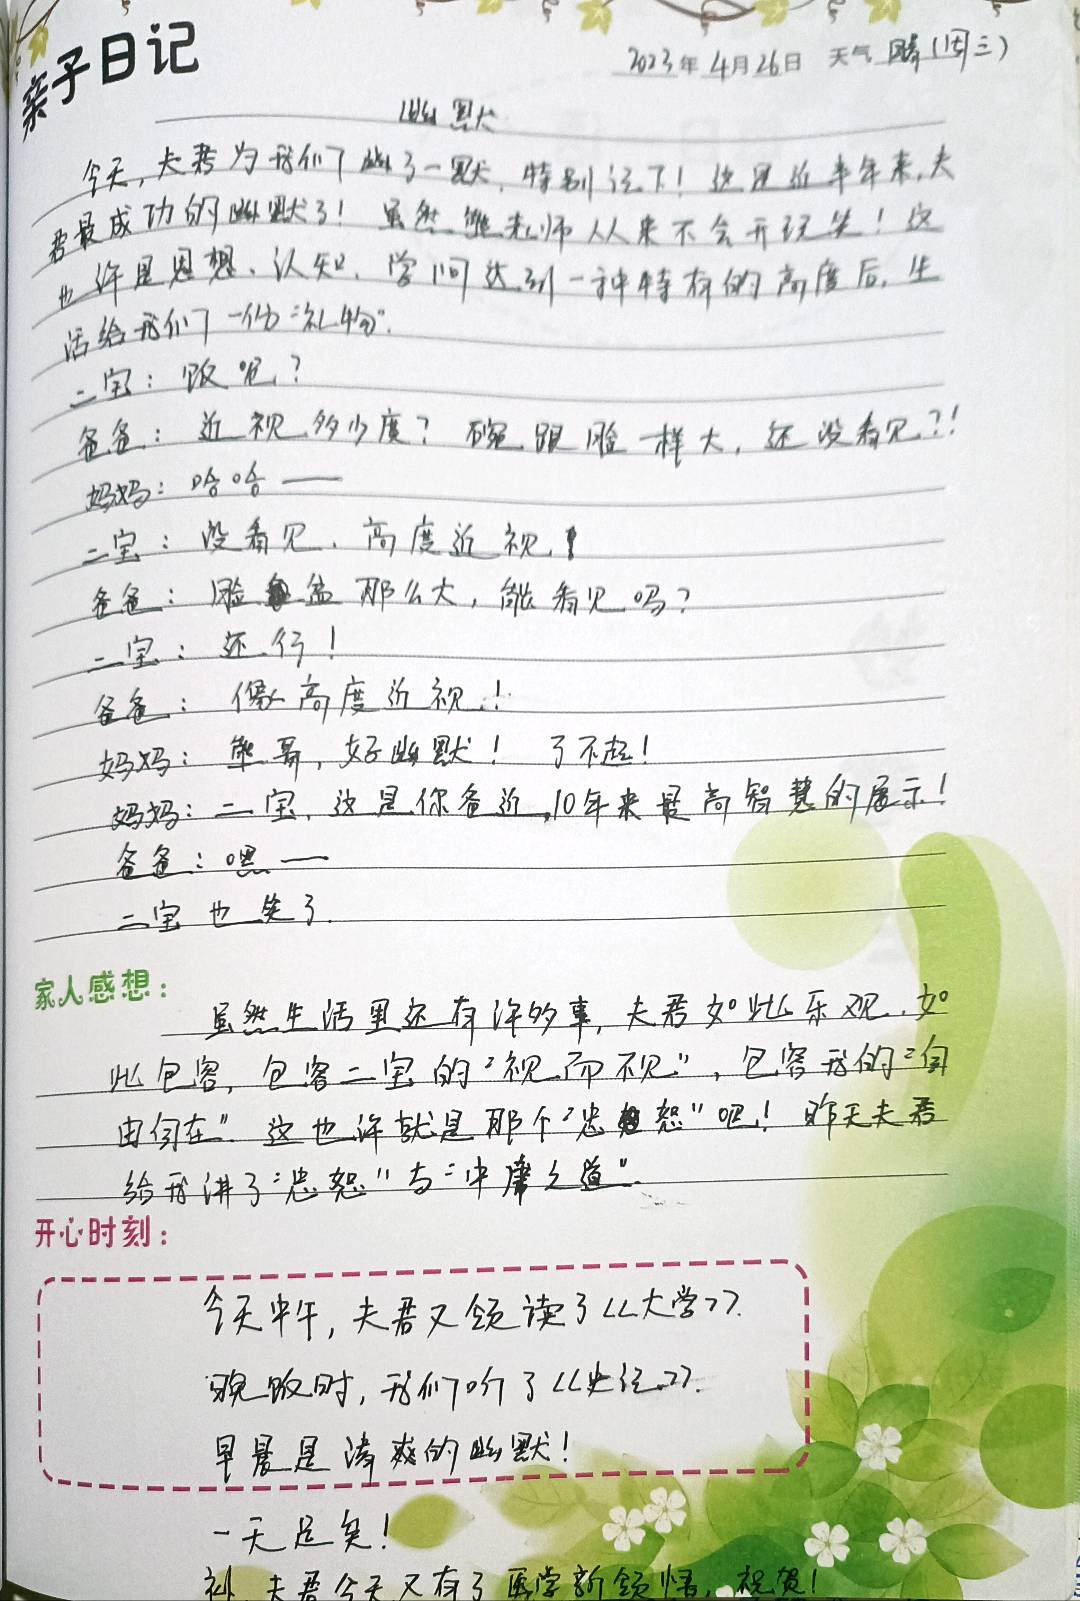 亲子日记
2023年4月26日 天气 晴(周三)
幽默
今天,夫君为我们幽了一默,特别记下!这是近半年来,夫
君最成功的幽默了!虽然熊老师从来不会开玩笑!这
也许是思想、认知、学问达到一种特有的高度后,生
活给我们一份"礼物".
二宝:饭呢?
爸爸:近视多少度?碗跟脸一样大,还没看见?!
妈妈:哈哈——
二宝:没看见,高度近视!
爸爸:脸盆那么大,能看见吗?
二宝:还行!
爸爸:像高度近视!
妈妈:熊哥,好幽默!了不起!
妈妈:二宝,这是你爸近10年来最高智慧的展示!
爸爸:嘿——
二宝也笑了.
家人感想:
虽然生活里还有许多事,夫君如此乐观,如
此包容,包容二宝的"视而不见",包容我的"自
由自在".这也许就是那个"忠恕"吧!昨天夫君
给我讲了"忠恕"与"中庸之道".
开心时刻:
今天中午,夫君又领读了《大学》.
晚饭时,我们听了《史记》.
早晨是清爽的幽默!
一天足矣!
补,夫君今天又有了医学新领悟,祝贺!